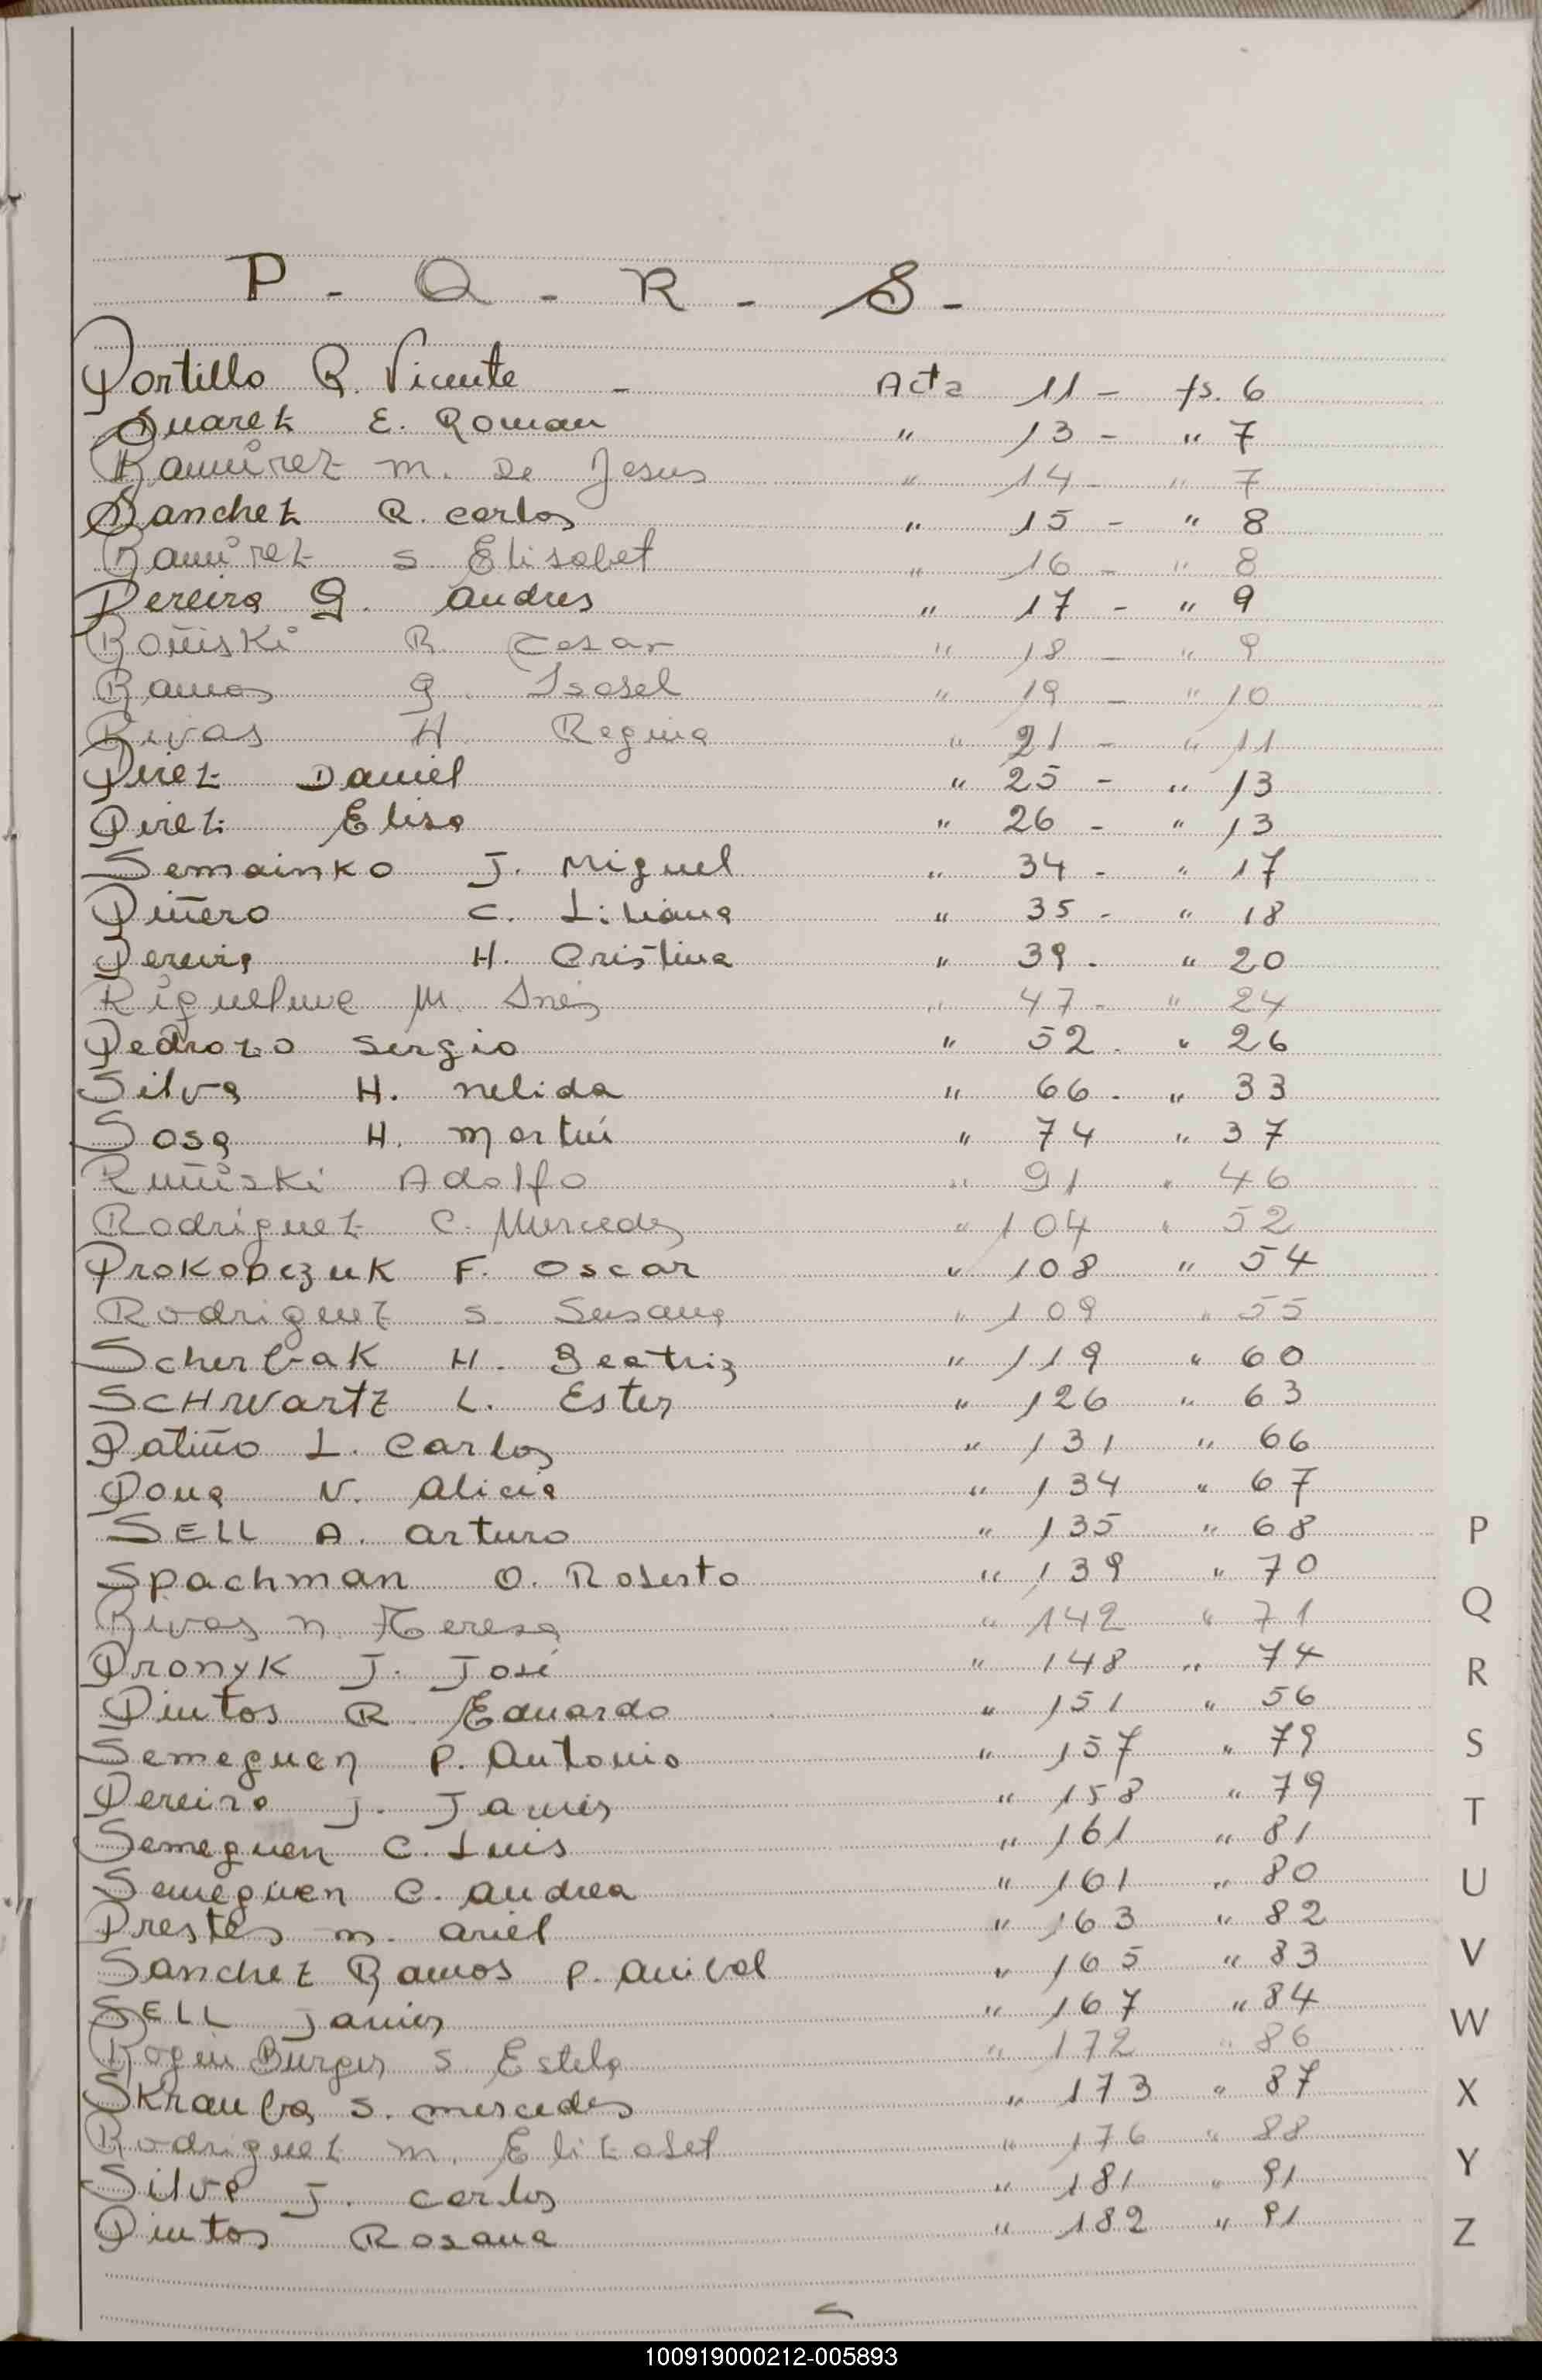 P - Q - R - S -
Portillo R. Vicente - Acta 11 - fs. 6
Suarez E. Roman " 13 - " 7
Ramírez M. De Jesus " 14 - " 7
Sanchez R. Carlos " 15 - " 8
Ramírez S. Elisabet " 16 - " 8
Pereira G. Andres " 17 - " 9
R. Cesar " 18 - " 9
Ramos G. Isabel " 19 - " 10
Rivas H. Regina " 21 - " 11
Perez Daniel " 25 - " 13
Perez Elisa " 26 - " 13
Semainko J. Miguel " 34 - " 17
Piñero C. Liliana " 35 - " 18
Pereira H. Cristina " 39 - " 20
M. Ines " 47 - " 24
Pedrozo Sergio " 52 - " 26
Silva H. Nelida " 66 - " 33
Sosa H. Martin " 74 " 37
Adolfo " 91 " 46
Rodriguez C. Mercedes " 104 " 52
Prokopczuk F. Oscar " 108 " 54
Rodriguez S. Susana " 109 " 55
Scherbak H. Beatriz " 119 " 60
SCHwartz L. Ester " 126 " 63
Patiño L. Carlos " 131 " 66
Pona N. Alicia " 134 " 67
SELL A. Arturo " 135 " 68
Spachman O. Roberto " 139 " 70
Rivas N. Teresa " 142 " 71
Pronyk J. José " 148 " 74
Pintos R. Eduardo " 151 " 56
Semeguen P. Antonio " 157 " 79
Pereira J. Javier " 158 " 79
Semeguen C. Luis " 161 " 81
Semeguen C. Andrea " 161 " 80
Prestes M. Ariel " 163 " 82
Sanchez Ramos P. Anibal " 165 " 83
SELL Javier " 167 " 84
Burger S. Estela " 172 " 86
Skrauba S. Mercedes " 173 " 87
Rodriguez M. Elizabet " 176 " 88
Silva J. Carlos " 181 " 91
Pintos Rosana " 182 " 91
P
Q
R
S
T
U
V
W
X
Y
Z
100919000212-005893